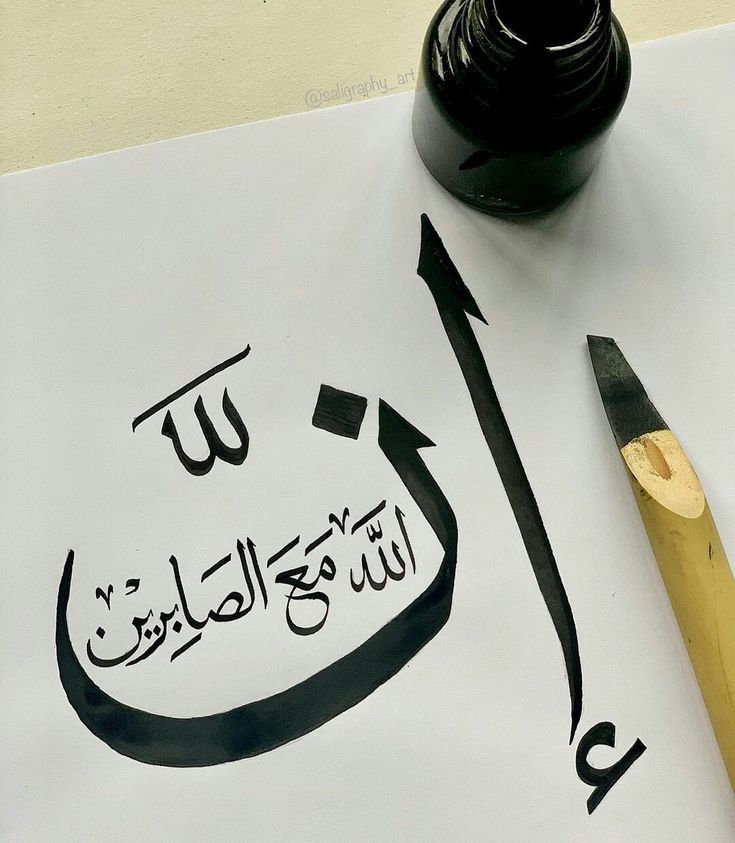 @saligraphy_art
إنَّ
اللَّه مَعَ الصَابِرِيْن